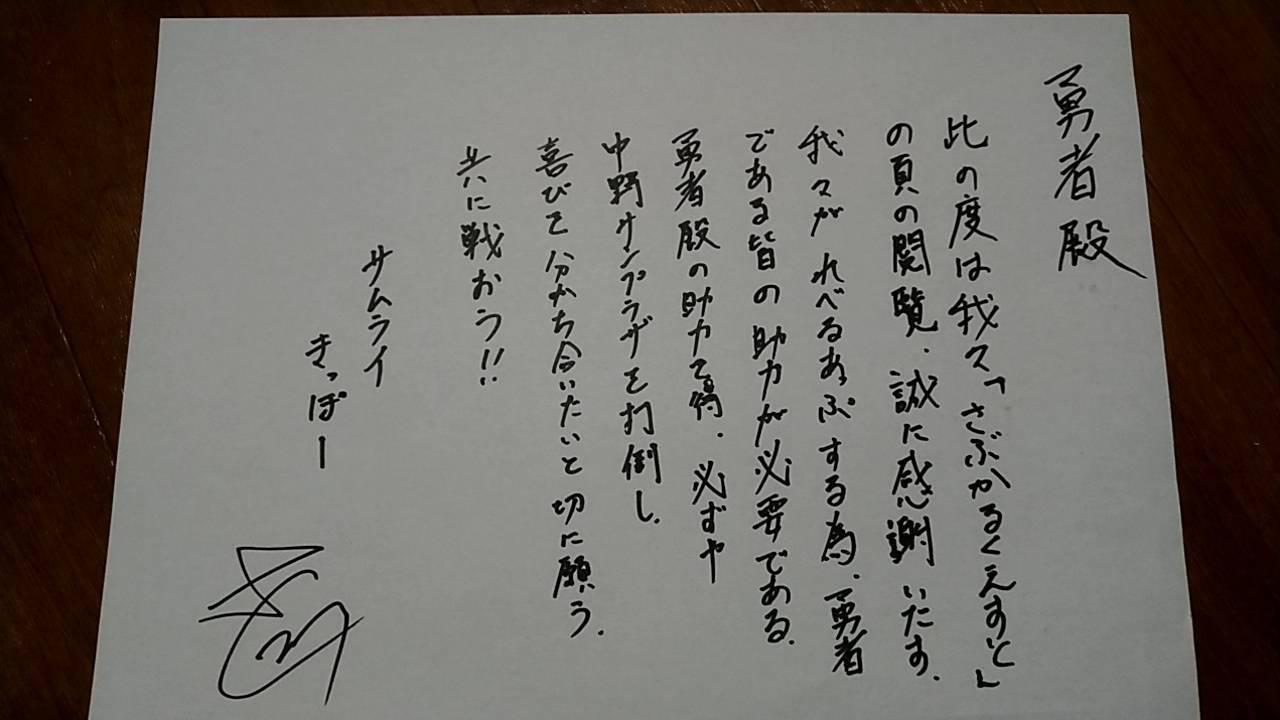 勇者殿
此の度は我々「さぶかるくえすと」
の頁の閲覧、誠に感謝いたす。
我々がれべるあっぷする為、勇者
である皆の助力が必要である。
勇者殿の助力を得、必ずや
中野サンプラザを打倒し、
喜びを分かち合いたいと切に願う。
共に戦おう!!
サムライ
きっぽー